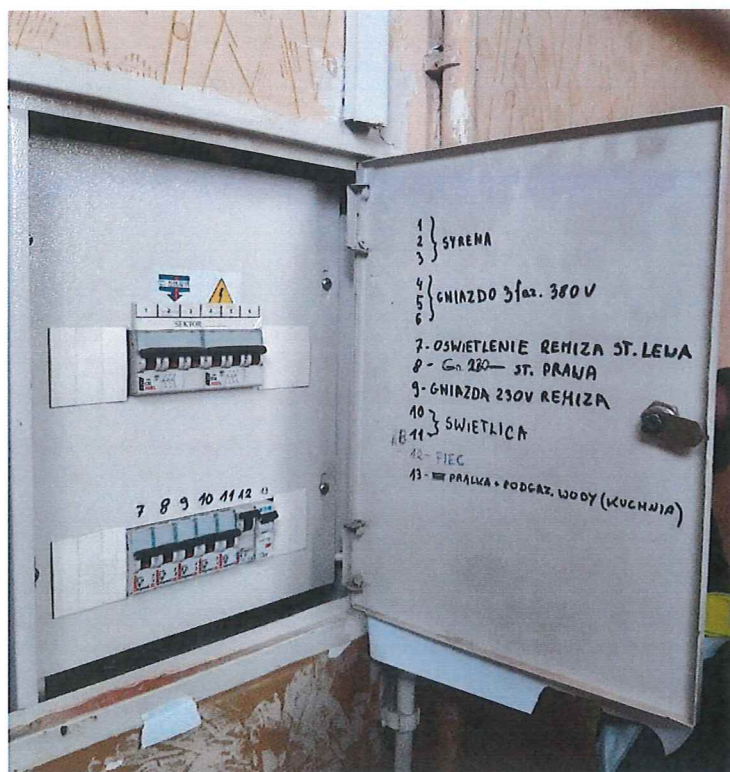 1 2 3 4 5 6
SEKTOR
7 8 9 10 11 12 13
1
2 } SYRENA
3
4
5 } GNIAZDO 3 faz. 380V
6
7- OSWIETLENIE REMIZA ST. LEWA
8 - Gn. 230 — ST. PRAWA
9- GNIAZDA 230V REMIZA
10
11 } SWIETLICA
12- PIEC
13- PRALKA + PODGRZ. WODY (KUCHNIA)